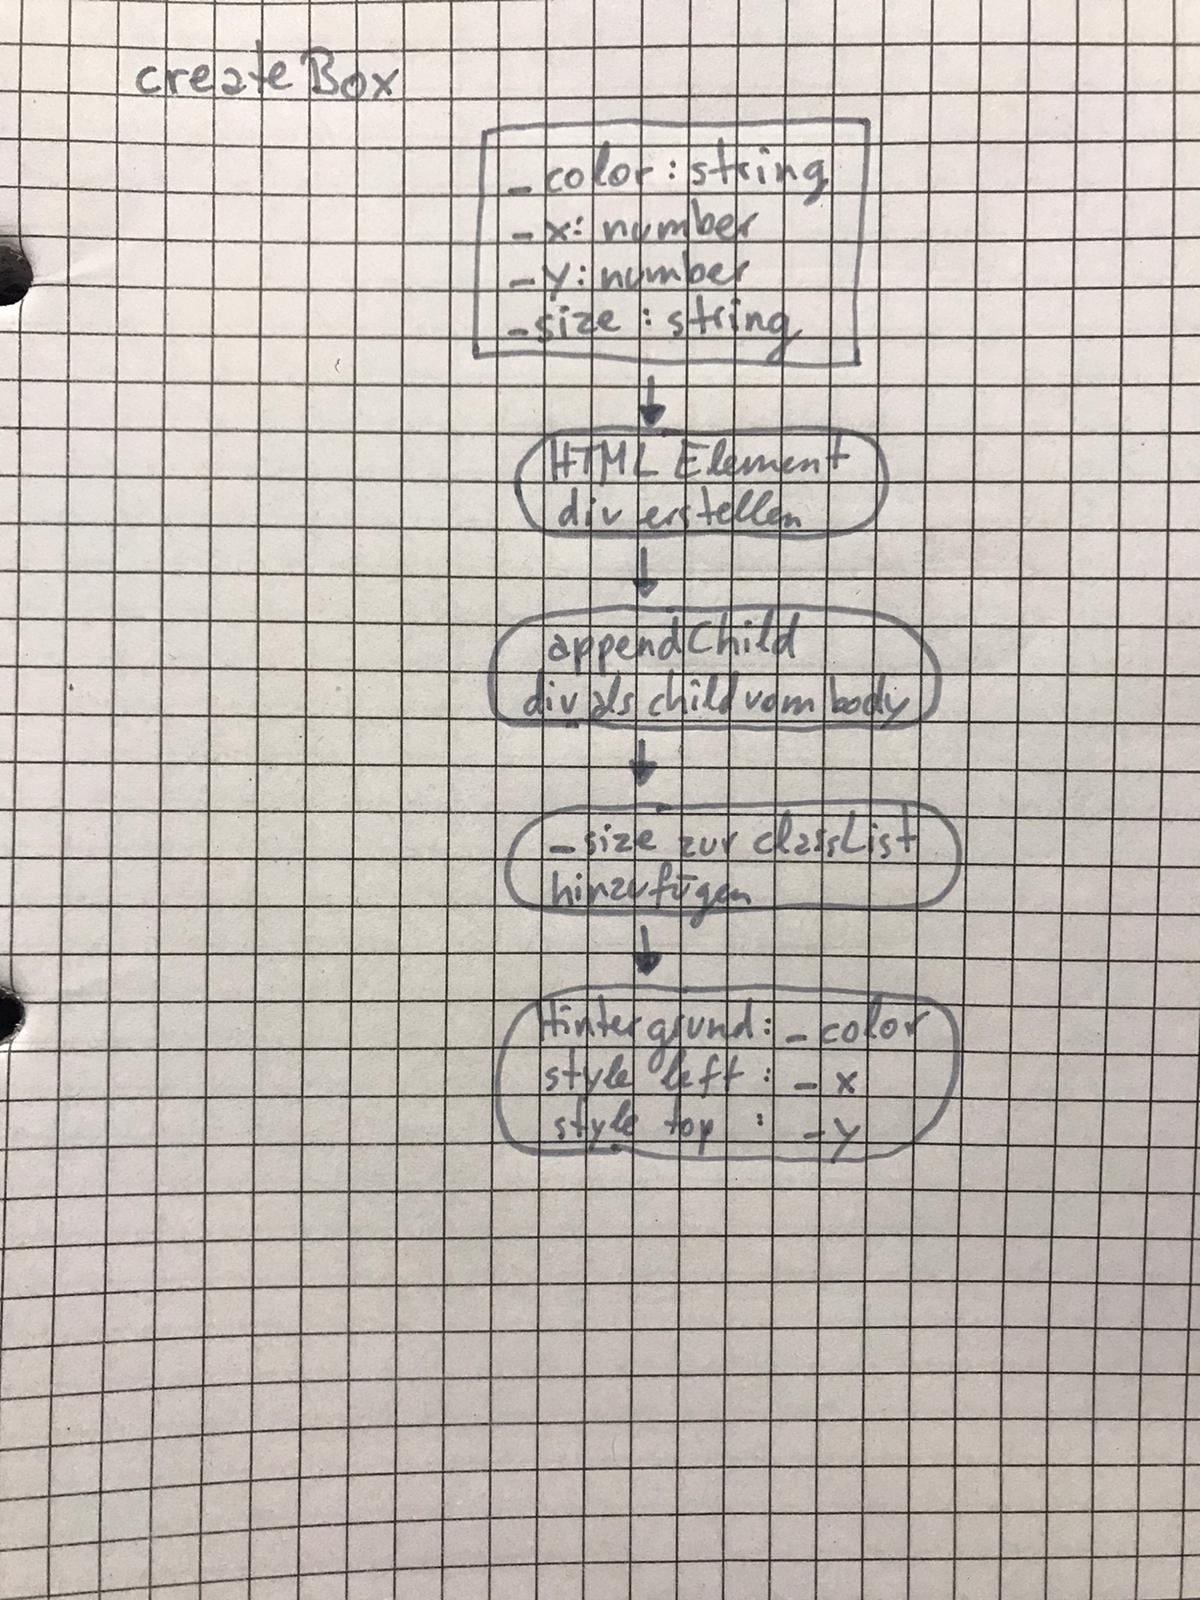 createBox
_color: string
_x: number
_y: number
_size: string
HTML Element
div erstellen
appendChild
div als child vom body
_size zur classList
hinzufügen
Hintergrund: _color
style left: _x
style top: _y